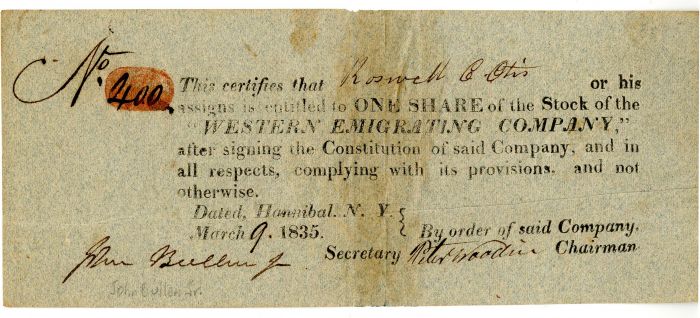 No. 400.
This certifies that Roswell C Otis or his
assigns is entitled to ONE SHARE of the Stock of the
"WESTERN EMIGRATING COMPANY,"
after signing the Constitution of said Company, and in
all respects, complying with its provisions, and not
otherwise.
Dated, Hannibal. N. Y. {
March 9. 1835. By order of said Company.
John Bullen Jr Secretary Peter Woodin Chairman
John Bullen Jr.